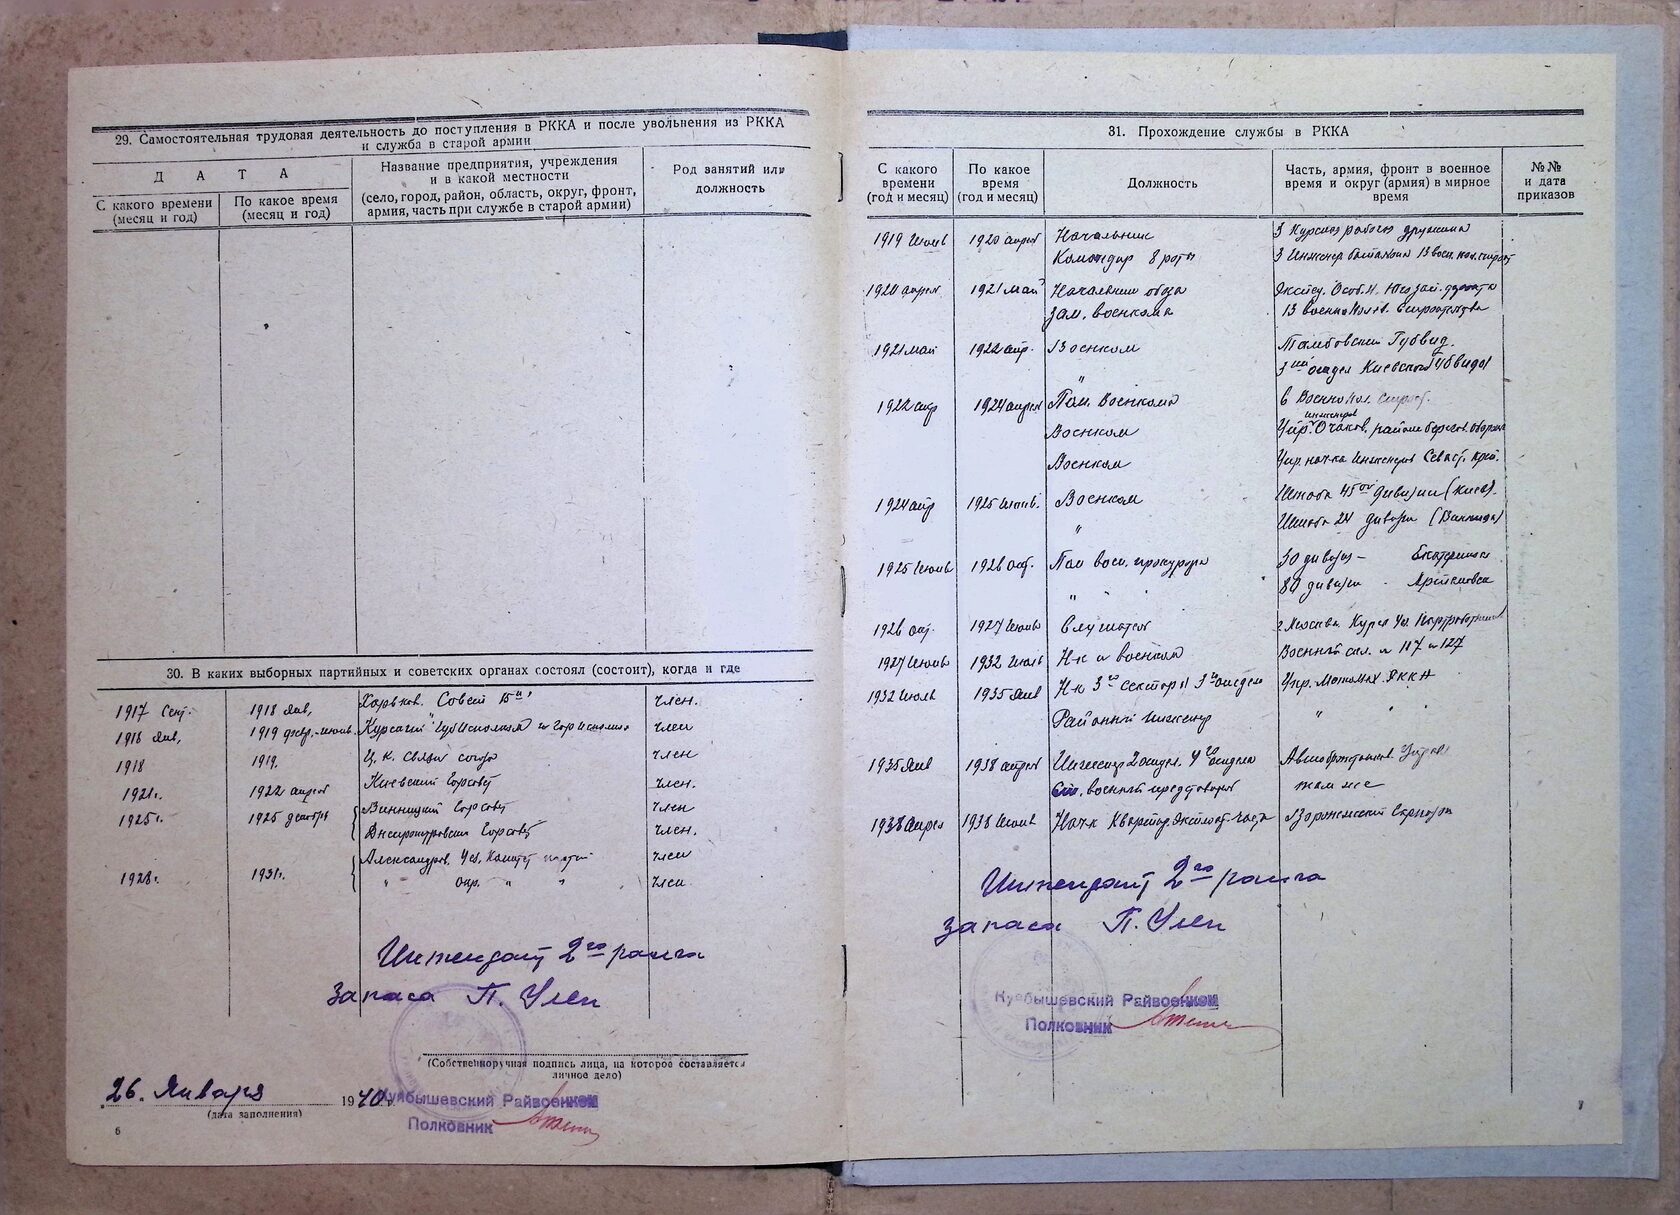 29. Самостоятельная трудовая деятельность до поступления в РККА и после увольнения из РККА
и служба в старой армии
ДАТА
С какого времени
(месяц и год)
По какое время
(месяц и год)
Название предприятия, учреждения
и в какой местности
(село, город, район, область, округ, фронт,
армия, часть при службе в старой армии)
Род занятий или
должность
30. В каких выборных партийных и советских органах состоял (состоит), когда и где
1917 Сент. 1918 Янв. Харьков. Совет член.
1918 Янв. 1919 февр.-июнь. Курский Губисполком и горисполком член
1918 1919. Ц. К. Связи союза член
1921г. 1922 апрель Киевский Горсовет член.
1925г. 1925 декабрь Винницкий Горсовет член
Днепропетровский Горсовет член.
1928г. 1931г. Александров. Уез. Комитет партии член
" окр. " " член
Интендант 2го ранга
запаса П. Улен
(Собственноручная подпись лица, на которое составляется
личное дело)
26. Января 1940 г.
(дата заполнения)
Куйбышевский Райвоенком
Полковник
6
31. Прохождение службы в РККА
С какого
времени
(год и месяц)
По какое
время
(год и месяц)
Должность
Часть, армия, фронт в военное
время и округ (армия) в мирное
время
№№
и дата
приказов
1919 Июнь 1920 апрель Начальник 3 Курская рабочая дружина
Командир 8 роты 3 Инженер батальон 13
1920 апрель 1921 май Начальник обоза
зам. военкома 13 военно строительства
1921 май 1922 апр. Военком Тамбовский Губвид.
" 3ий отдел Киевского Губвида
1922 апр 1924 апрель Пом. Военкома в Военно пол. строит.
Военком Упр. инженеров Очаков. района берегов. обороны
Военком Упр. нач-ка Инженеров Севаст. креп.
1924 апр 1925 Июнь. Военком Штаба 45ой дивизии (Киев).
" Штаба 24 дивизии (Винница)
1925 Июнь 1926 окт. Пом воен. прокурора 30 дивизия —
" " 80 дивизия - Артемовск
1926 окт. 1927 Июнь Слушатель г. Москва. Курсы
1927 Июнь 1932 Июль Н-к и военком Военный скл. № 117 и 127
1932 Июль 1935 Янв Н-к 3го сектора 3го отдела Упр. Мотомех. РККА
Районный инженер " "
1935 Янв 1938 апрель Инженер 2 отдел. 4го отдела Автобронетанков. Управ.
Ст. военный представит. там же
1938 Апрель 1938 Июнь Нач-к Квартир. Эксплоат. части Воронежский Гарнизон
Интендант 2го ранга
запаса П. Улен
Куйбышевский Райвоенком
Полковник
7